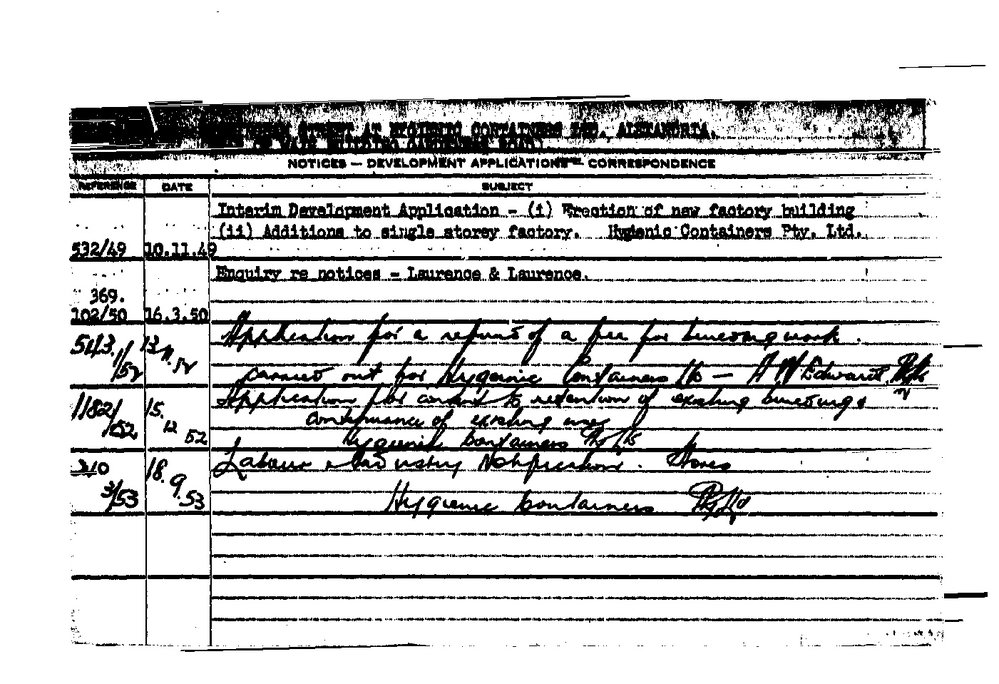 STREET AT HYGIENIC CONTAINERS INC. ALEXANDRIA.
NOTICES — DEVELOPMENT APPLICATIONS — CORRESPONDENCE
REFERENCE DATE SUBJECT
Interim Development Application - (i) Erection of new factory building
(ii) Additions to single storey factory. Hygienic Containers Pty. Ltd.
532/49 10.11.49
Enquiry re notices - Laurence & Laurence.
369.
102/50 16.3.50
Application for a refund of a fee for building work.
carried out for Hygienic Containers - A W Edwards
1182/52 15.12.52 Application for consent to retention of existing buildings &
continuance of existing uses
Hygienic Containers Pty Ltd
310 3/53 18.9.53 Labour & Industry Notification. Stores
Hygienic Containers Pty Ltd